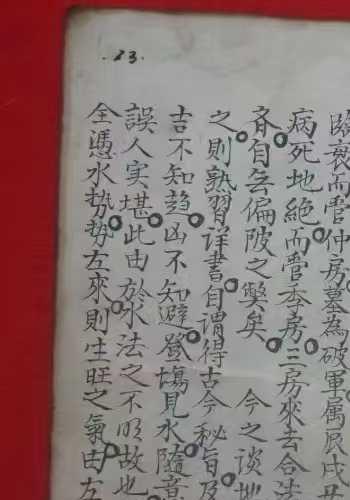 23.
臨衰而管仲房墓為破軍属辰戌
病死地絶而管季房三房來去合法
斉自無偏陂之弊矣 今之談地
之則熟習详書自謂得古今秘旨及
吉不知趋凶不知避登塲見水隨意
誤人实堪此由於水法之不明故也
全憑水势势左來則生旺之氣由左